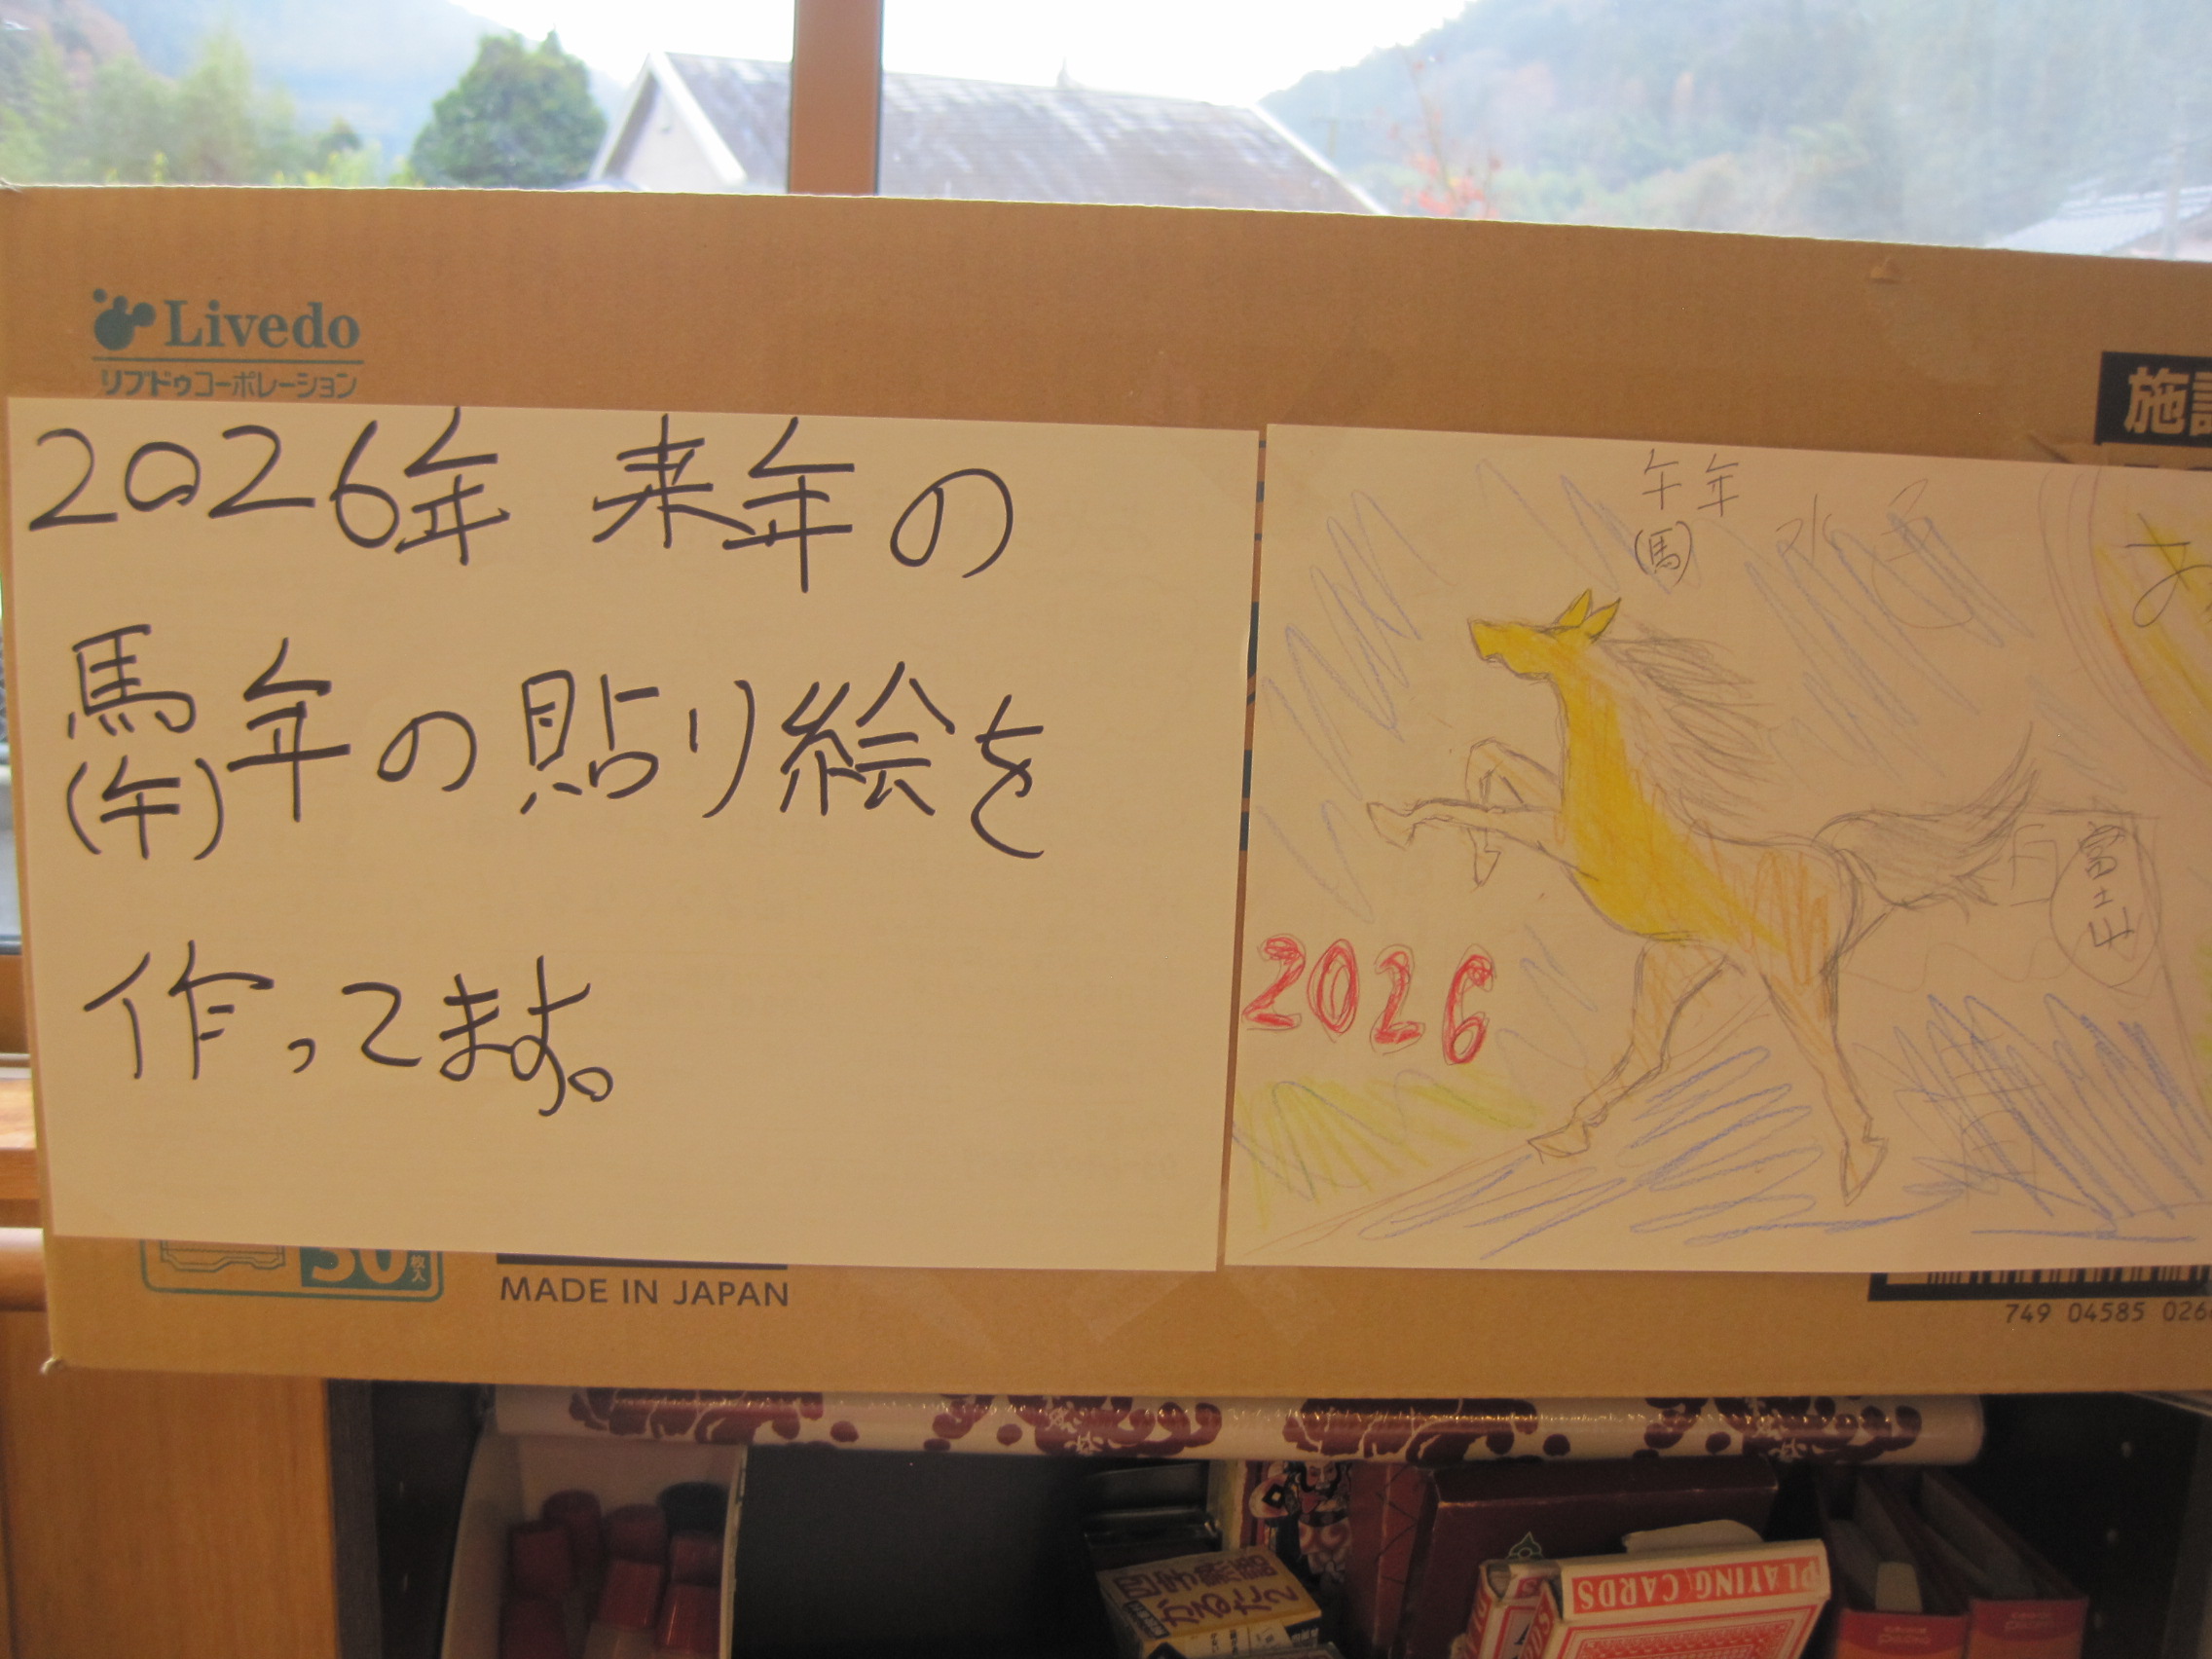 Livedo
リブドゥコーポレーション
施設
2026年 来年の
馬(午)年の貼り絵を
作ってます。
午年
(馬)
水色
富士山
2026
30枚入
MADE IN JAPAN
749 04585 026
PLAYING CARDS